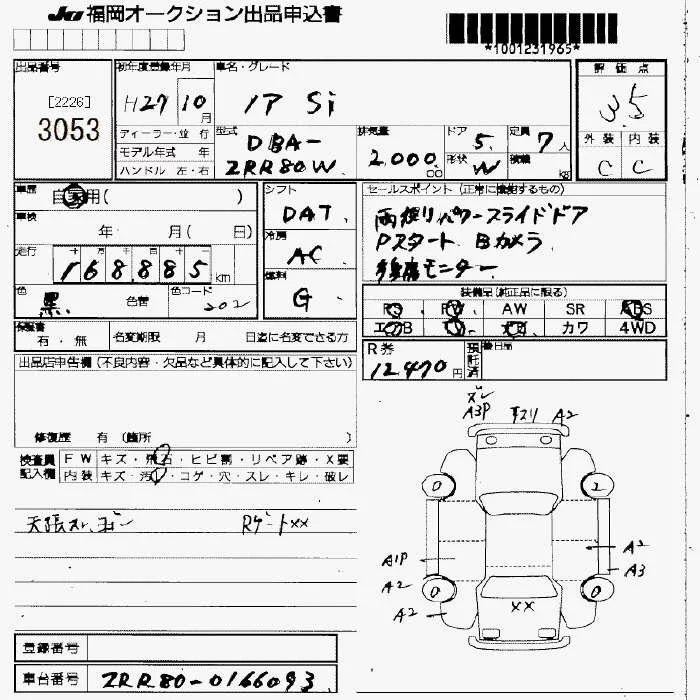 JU 福岡オークション出品申込書
*1001231965*
出品番号
[2226]
3053
初年度登録年月
H27 10 月
車名・グレード
ノア Si
評価点
3.5
ディーラー・並行
モデル年式 年
ハンドル 左・右
型式
DBA-
ZRR80W
排気量
2,000
ドア
5
形状
W
定員
7 人
積載
kg
外装 内装
C C
車歴
自家用( )
車検
年 月( 日)
走行
十 万 千 百 十 一
168,885 km
色
黒
色替
色コード
202
シフト
DAT
冷房
AC
燃料
G
セールスポイント (正常に機能するもの)
両側パワースライドドア
Pスタート Bカメラ
後席モニター
装備品(純正品に限る)
PS PW AW SR ABS
エアB TV ナビ カワ 4WD
保証書
有・無
名変期限 月 日迄に名変できる方
R券
12,470 円
預託済
出品店申告欄(不良内容・欠品など具体的に記入して下さい)
修復歴 有 (箇所 )
検査員記入欄
FW キズ・飛石・ヒビ割・リペア跡・X要
内装 キズ・汚れ・コゲ・穴・スレ・キレ・破レ
天張スレ、ヨゴレ Rゲート××
ズレ
A3P スリ A2
0 2
A1P
A2
A2
A2
A3
0 0
××
登録番号
車台番号
ZRR80-0166093